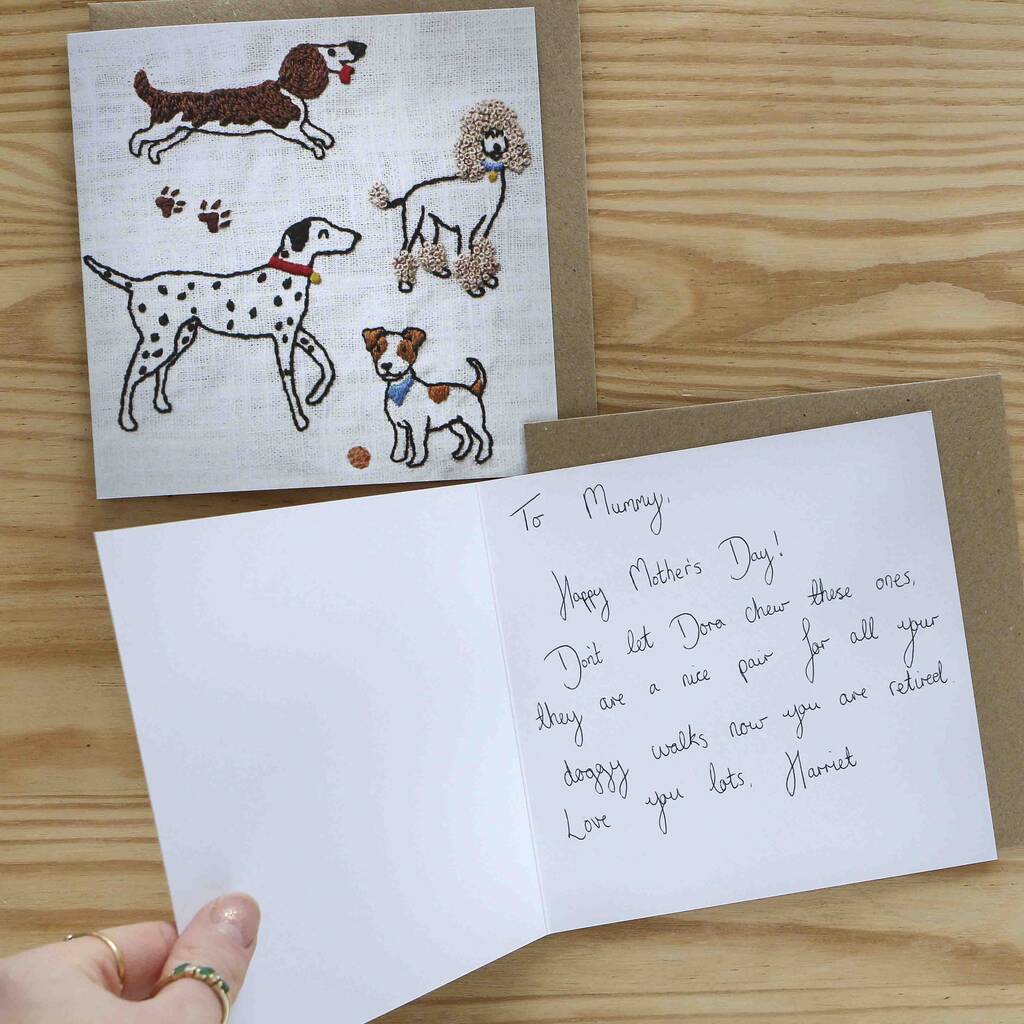 To Mummy,
Happy Mother's Day!
Don't let Dora chew these ones,
they are a nice pair for all your
doggy walks now you are retired.
Love you lots, Harriet